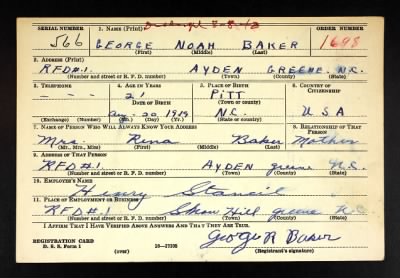 SERIAL NUMBER 1. NAME (Print) ORDER NUMBER
566 GEORGE NOAH BAKER 1698
(First) (Middle) (Last)
2. ADDRESS (Print)
RFD#1. AYDEN GREENE N.C.
(Number and street or R. F. D. number) (Town) (County) (State)
3. TELEPHONE 4. AGE IN YEARS 5. PLACE OF BIRTH 6. COUNTRY OF CITIZENSHIP
- - - 21 PITT
DATE OF BIRTH (Town or county)
Aug 20 1919 N.C. USA
(Exchange) (Number) (Mo.) (Day) (Yr.) (State or country)
7. NAME OF PERSON WHO WILL ALWAYS KNOW YOUR ADDRESS 8. RELATIONSHIP OF THAT PERSON
Mrs. Rena Baker Mother
(Mr., Mrs., Miss) (First) (Middle) (Last)
9. ADDRESS OF THAT PERSON
RFD#1. AYDEN greene N.C.
(Number and street or R. F. D. number) (Town) (County) (State)
10. EMPLOYER'S NAME
Henry Stancil
11. PLACE OF EMPLOYMENT OR BUSINESS
RFD#1 Snow Hill greene N.C.
(Number and street or R. F. D. number) (Town) (County) (State)
I AFFIRM THAT I HAVE VERIFIED ABOVE ANSWERS AND THAT THEY ARE TRUE.
REGISTRATION CARD George N Baker
D. S. S. Form 1 (over) 16—17105 (Registrant's signature)